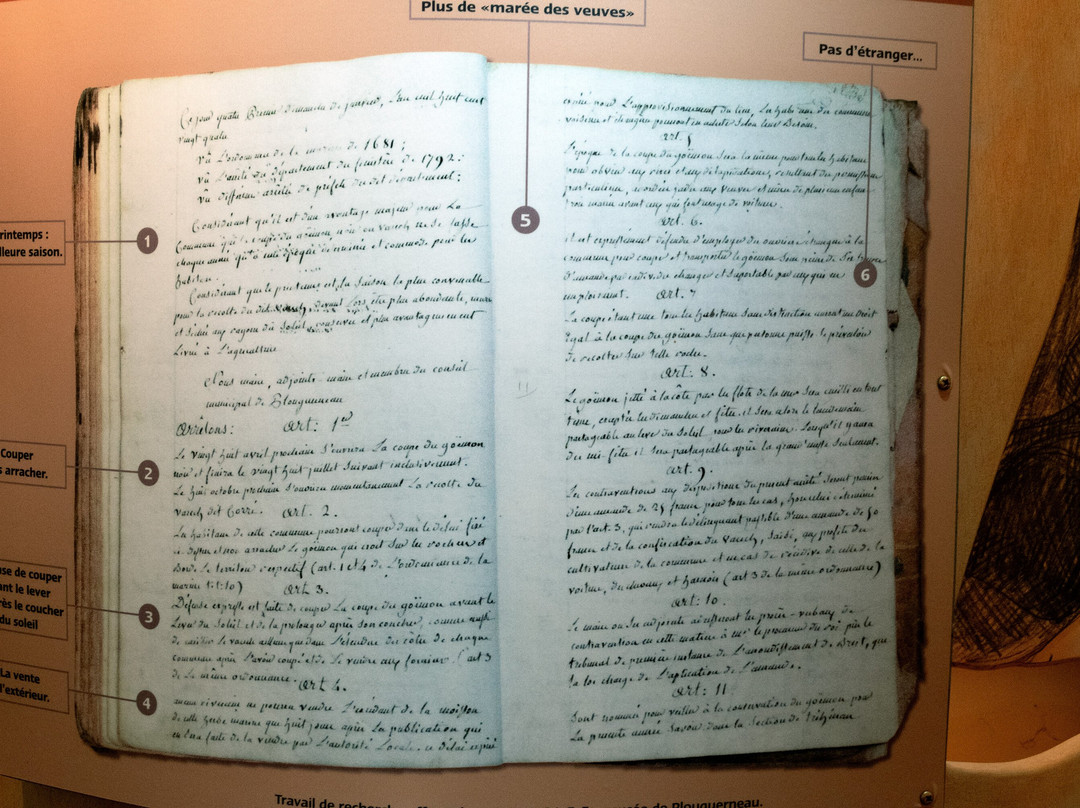 Plus de «marée des veuves»
Pas d'étranger...
rintemps :
lleure saison.
1
Couper
s arracher.
2
se de couper
nt le lever
rès le coucher
du soleil
3
La vente
l'extérieur.
4
5
6
Ce jour quatre Premier Dimanche de janvier, l'an mil huit cent
vingt quatre
vû L'ordonnance de la marine de 1681 ;
vû L'arrêté du Département du finistère de 1792 :
vû différens arrêtés de préfets du dit département ;
Considérant qu'il est d'un avantage majeur pour La
Commune que la coupe du goëmon noir ou varech ne se fasse
chaque année qu'à une époque déterminée et commode pour les
habitans.
Considérant que le printems est la saison la plus convenable
pour la récolte du dit
et séché aux rayons du Soleil, conservée et plus avantageusement
Livrée à L'agriculture
Nous maire, adjoints-maire et membres du conseil
municipal de Plouguerneau
arrêtons : art: 1er
Le vingt huit avril prochain S'ouvrira La coupe du goëmon
noir et finira le vingt huit juillet Suivant inclusivement.
Le huit octobre prochain S'ouvrira La récolte du
varech dit Corré. art. 2.
Les habitans de cette commune pourront couper dans le délai fixé
ci dessus et non arracher Le goëmon qui croit Sur les rochers et
Bords de Territoire respectif (art. 1 et 4 de L'ordonnance de la
marine tit: 10) art. 3.
Défense expresse est faite de couper La coupe du goëmon avant le
Lever du Soleil et de la prolonger après son coucher, comme aussi
de
commune après l'avoir coupé et de Le vendre aux forains. (art 3
de La même ordonnance. art 4.
aucun riverain ne pourra vendre L'excédent de la moisson
de cette herbe marine que huit jours après La publication qui
en Sera faite de la vendre par L'autorité Locale. ce délai expiré
pour L'approvisionnement du lieu, Les habitans des communes
voisines et éloignées pourront en acheter Selon leurs Besoins.
art. 5
L'époque de la coupe du goëmon Sera la même pour tous les habitans
pour obvier aux rixes et aux dilapidations, résultant des permissions
particulières, accordées jadis aux veuves et mères de plusieurs enfans
trois marées avant ceux qui font usage de voitures.
art. 6.
il est expressément défendu d'employer des ouvriers étrangers à la
commune pour couper et transporter le goëmon Sous peine de
d'amende par individu étranger et Supportable par ceux qui en
emploieront. art. 7
La coupe étant une tous les habitans Sans distinction auront un Droit
égal à la coupe du goëmon Sans que personne puisse Se prévaloir
de récolter Sur telle roche.
art: 8.
Le goëmon jetté à la côte par les flots de la mer Sera cueilli en tout
tems, excepté les dimanches et fêtes, et Sera alors le lendemain
partageable au lever du Soleil pour les riverains. Lorsqu'il y aura
des mi-fêtes il Sera partageable après la grand'messe Seulement.
art. 9.
Les contraventions aux dispositions du présent arrêté Seront punies
d'une amende de 25 francs pour tous les cas, hors celui déterminé
par l'art. 3, qui rendra le délinquant passible d'une amende de 50
francs et de la confiscation du varech, Saisi, au profit des
cultivateurs de la commune et en cas de récidive de celle de la
voiture, des chevaux et harnois (art 3 de la même ordonnance)
art: 10.
Le maire ou Ses adjoints adresseront les procès-verbaux de
contravention en cette matière à mr le procureur du roi près le
tribunal de première instance de L'arrondissement de Brest, que
la loi charge de L'application de L'amende.
art: 11
Sont nommés pour veiller à la conservation du goëmon pour
La présente année Savoir dans la Section de
Travail de
de Plouguerneau.